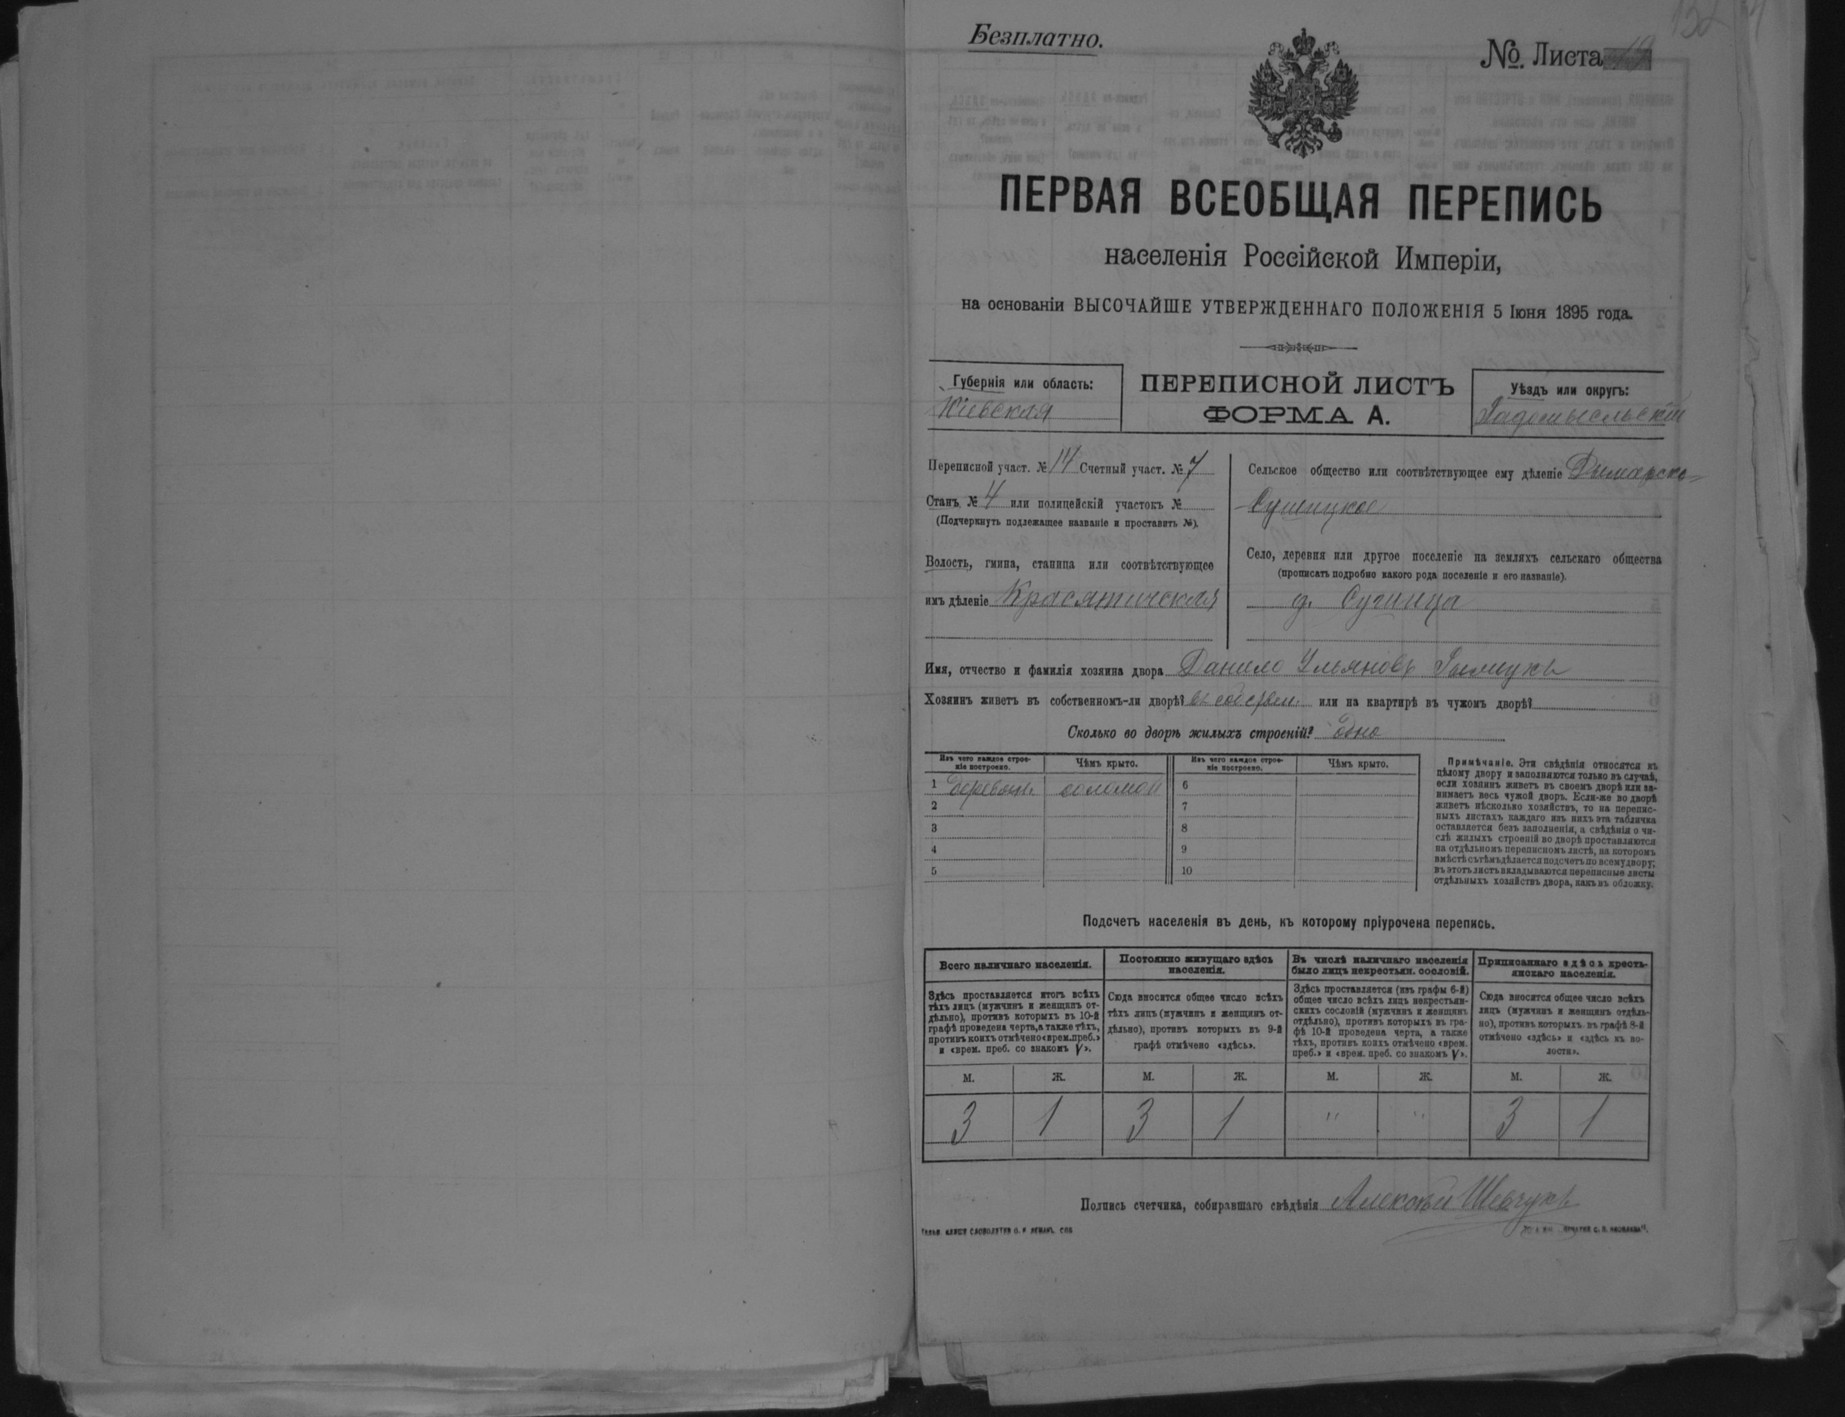 Безплатно.
№ Листа
ПЕРВАЯ ВСЕОБЩАЯ ПЕРЕПИСЬ
населенія Россійской Имперіи,
на основаніи ВЫСОЧАЙШЕ УТВЕРЖДЕННАГО ПОЛОЖЕНІЯ 5 Іюня 1895 года.
Губернія или область:
Кіевская
ПЕРЕПИСНОЙ ЛИСТЪ
ФОРМА А.
Уѣздъ или округъ:
Радомысльскій
Переписной участ. № 14 Счетный участ. № 7
Станъ № 4 или полицейскій участокъ №
(Подчеркнуть подлежащее названіе и проставить №).
Волость, гмина, станица или соотвѣтствующее
имъ дѣленіе Красятичская
Сельское общество или соотвѣтствующее ему дѣленіе
Село, деревня или другое поселеніе на земляхъ сельскаго общества
(прописать подробно какого рода поселеніе и его названіе).
д.
Имя, отчество и фамилія хозяина двора Данило Ульяновъ
Хозяинъ живетъ въ собственномъ-ли дворѣ? въ собствен. или на квартирѣ въ чужомъ дворѣ?
Сколько во дворѣ жилыхъ строеній? Одно
Изъ чего каждое строе-
ніе построено.
Чѣмъ крыто.
Изъ чего каждое строе-
ніе построено.
Чѣмъ крыто.
1 деревян. соломой 6
2 7
3 8
4 9
5 10
Примѣчаніе. Эти свѣдѣнія относятся къ
цѣлому двору и заполняются только въ случаѣ,
если хозяинъ живетъ въ своемъ дворѣ или за-
нимаетъ весь чужой дворъ. Если-же во дворѣ
живетъ нѣсколько хозяйствъ, то на перепис-
ныхъ листахъ каждаго изъ нихъ эта табличка
оставляется безъ заполненія, а свѣдѣнія о чи-
слѣ жилыхъ строеній во дворѣ проставляются
на отдѣльномъ переписномъ листѣ, на которомъ
вмѣстѣ съ тѣмъ дѣлается подсчетъ по всему двору;
въ этотъ листъ вкладываются переписные листы
отдѣльныхъ хозяйствъ двора, какъ въ обложку.
Подсчетъ населенія въ день, къ которому пріурочена перепись.
Всего наличнаго населенія.
Постоянно живущаго здѣсь
населенія.
Въ числѣ наличнаго населенія
было лицъ некрестьян. сословій.
Приписаннаго здѣсь кресть-
янскаго населенія.
Здѣсь проставляется итогъ всѣхъ
тѣхъ лицъ (мужчинъ и женщинъ от-
дѣльно), противъ которыхъ въ 10-й
графѣ проведена черта, а также тѣхъ,
противъ коихъ отмѣчено «врем. преб.»
и «врем. преб. со знакомъ V».
Сюда вносится общее число всѣхъ
тѣхъ лицъ (мужчинъ и женщинъ от-
дѣльно), противъ которыхъ въ 9-й
графѣ отмѣчено «здѣсь».
Здѣсь проставляется (изъ графы 6-й)
общее число всѣхъ лицъ некрестьян-
скихъ сословій (мужчинъ и женщинъ
отдѣльно), противъ которыхъ въ гра-
фѣ 10-й проведена черта, а также
тѣхъ, противъ коихъ отмѣчено «врем.
преб.» и «врем. преб. со знакомъ V».
Сюда вносится общее число всѣхъ
лицъ (мужчинъ и женщинъ отдѣль-
но), противъ которыхъ въ графѣ 8-й
отмѣчено «здѣсь» и «здѣсь къ во-
лости».
М. Ж. М. Ж. М. Ж. М. Ж.
3 1 3 1 " " 3 1
Подпись счетчика, собиравшаго свѣдѣнія Алексѣй Шевчукъ